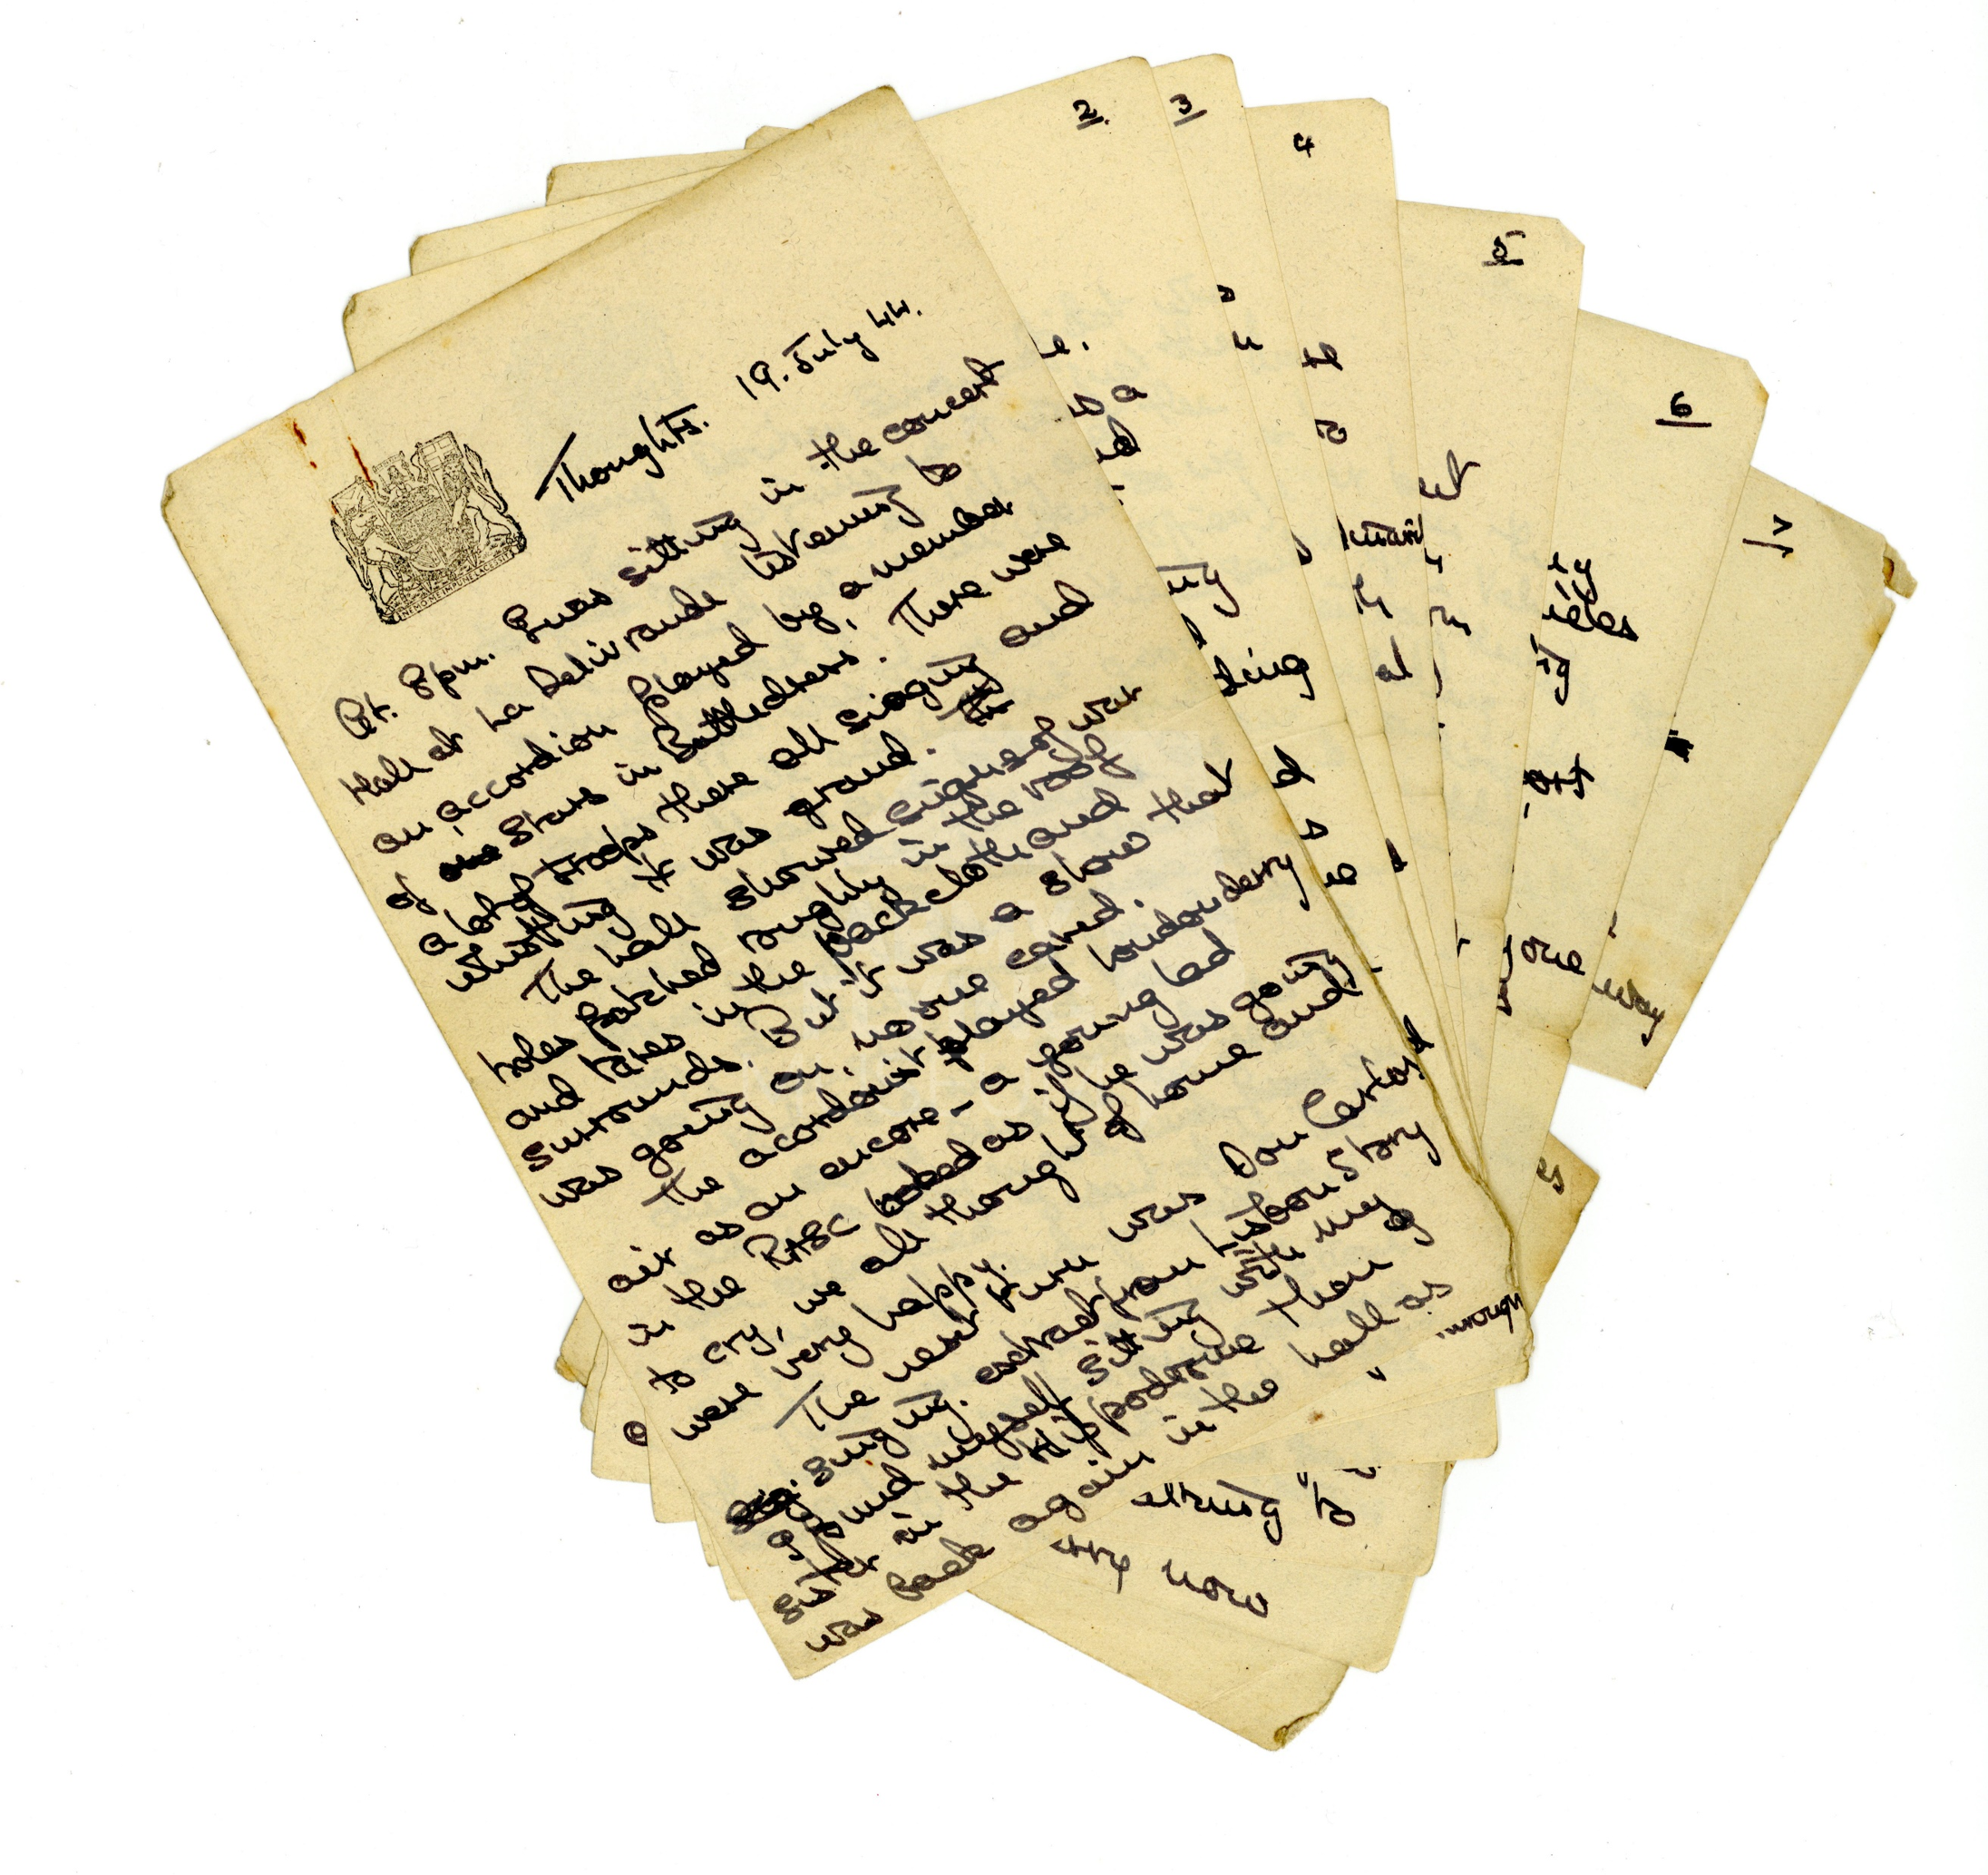 Thoughts. 19. July 44.
At. 8pm. I was sitting in the concert
Hall at La Deliverande listening to
an accordion played by a member
of Stars in Battledress. There were
a lot of troops there all singing and
whistling it was grand.
The hall showed signs of war
holes patched roughly in the roof
and tares in the back cloth and
surrounds. But it was a show that
was going on. no one cared.
The acordonist played Londonderry
air as an encore – a young lad
in the RASC looked as if he was going
to cry, we all thought of home and
were very happy.
The next turn was Don Carlos
singing. extract from Lisbon Story
I found myself sitting with my
sister in the Hippodrome then I
was back again in the hall as
2.
3
4
5
6
7
one
way
now
to